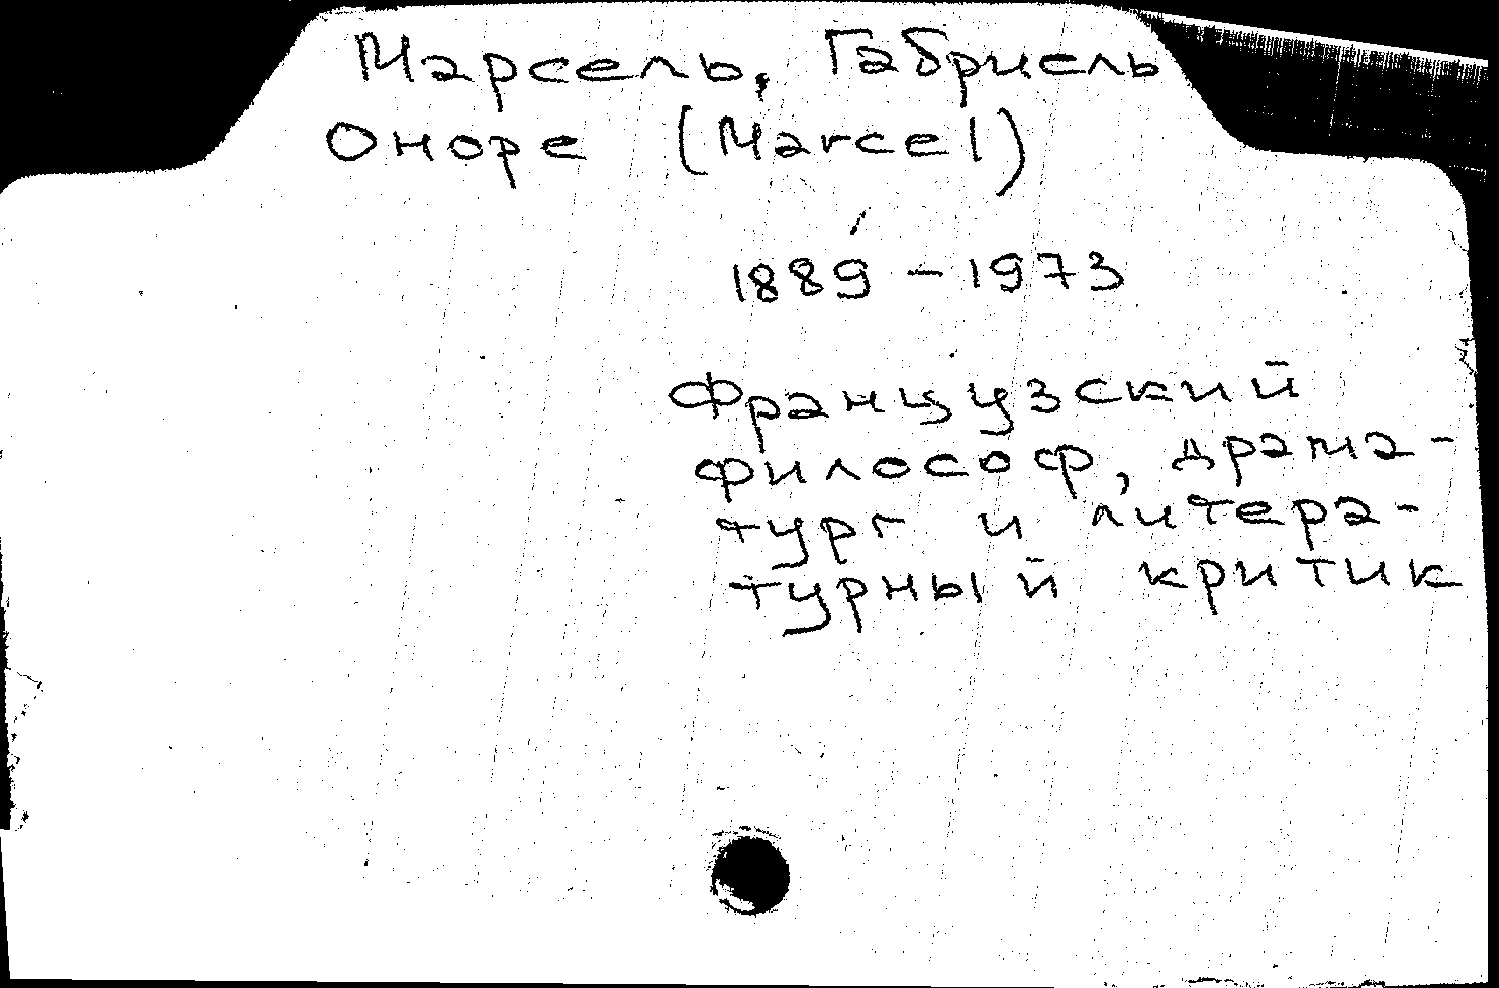 Марсель, Габриель
Оноре (Marcel)
1889 – 1973
Французский
философ, драма-
тург и литера-
турный критик